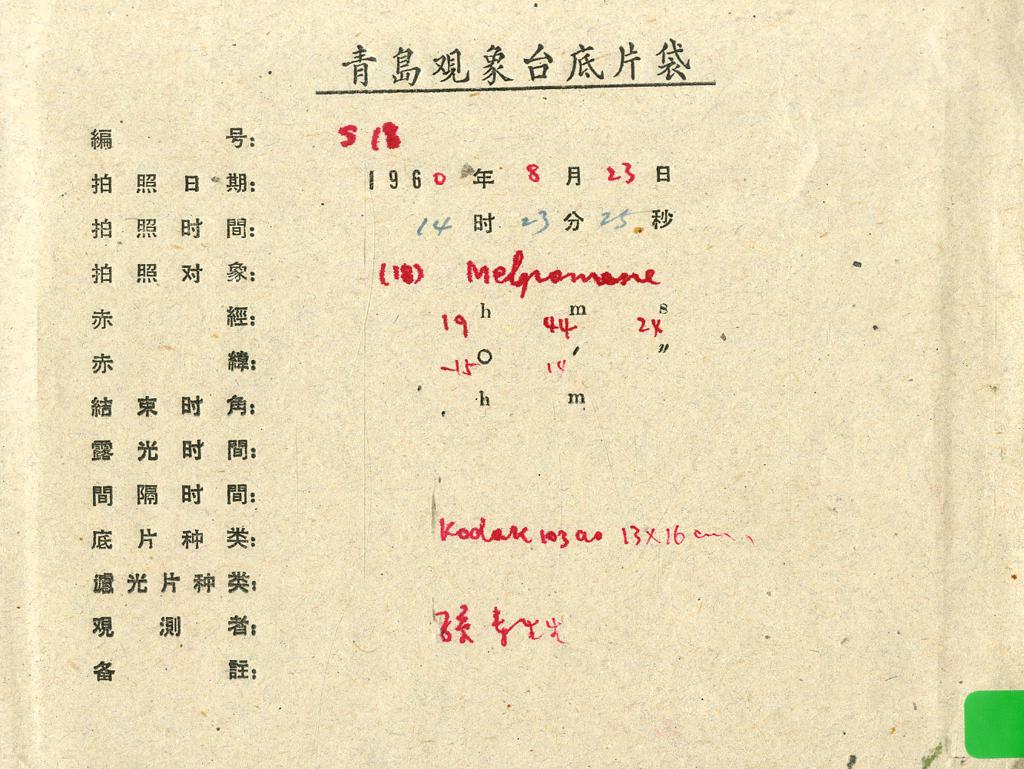 青島观象台底片袋
編号: S18
拍照日期: 1960年8月23日
拍照时間: 14时23分25秒
拍照对象: (18) Melpomene
赤經: 19h 44m 24s
赤緯: -15° 14′ ″
結束时角: h m
露光时間:
間隔时間:
底片种类: Kodak 103ao 13×16 cm
濾光片种类:
观測者:
备註: